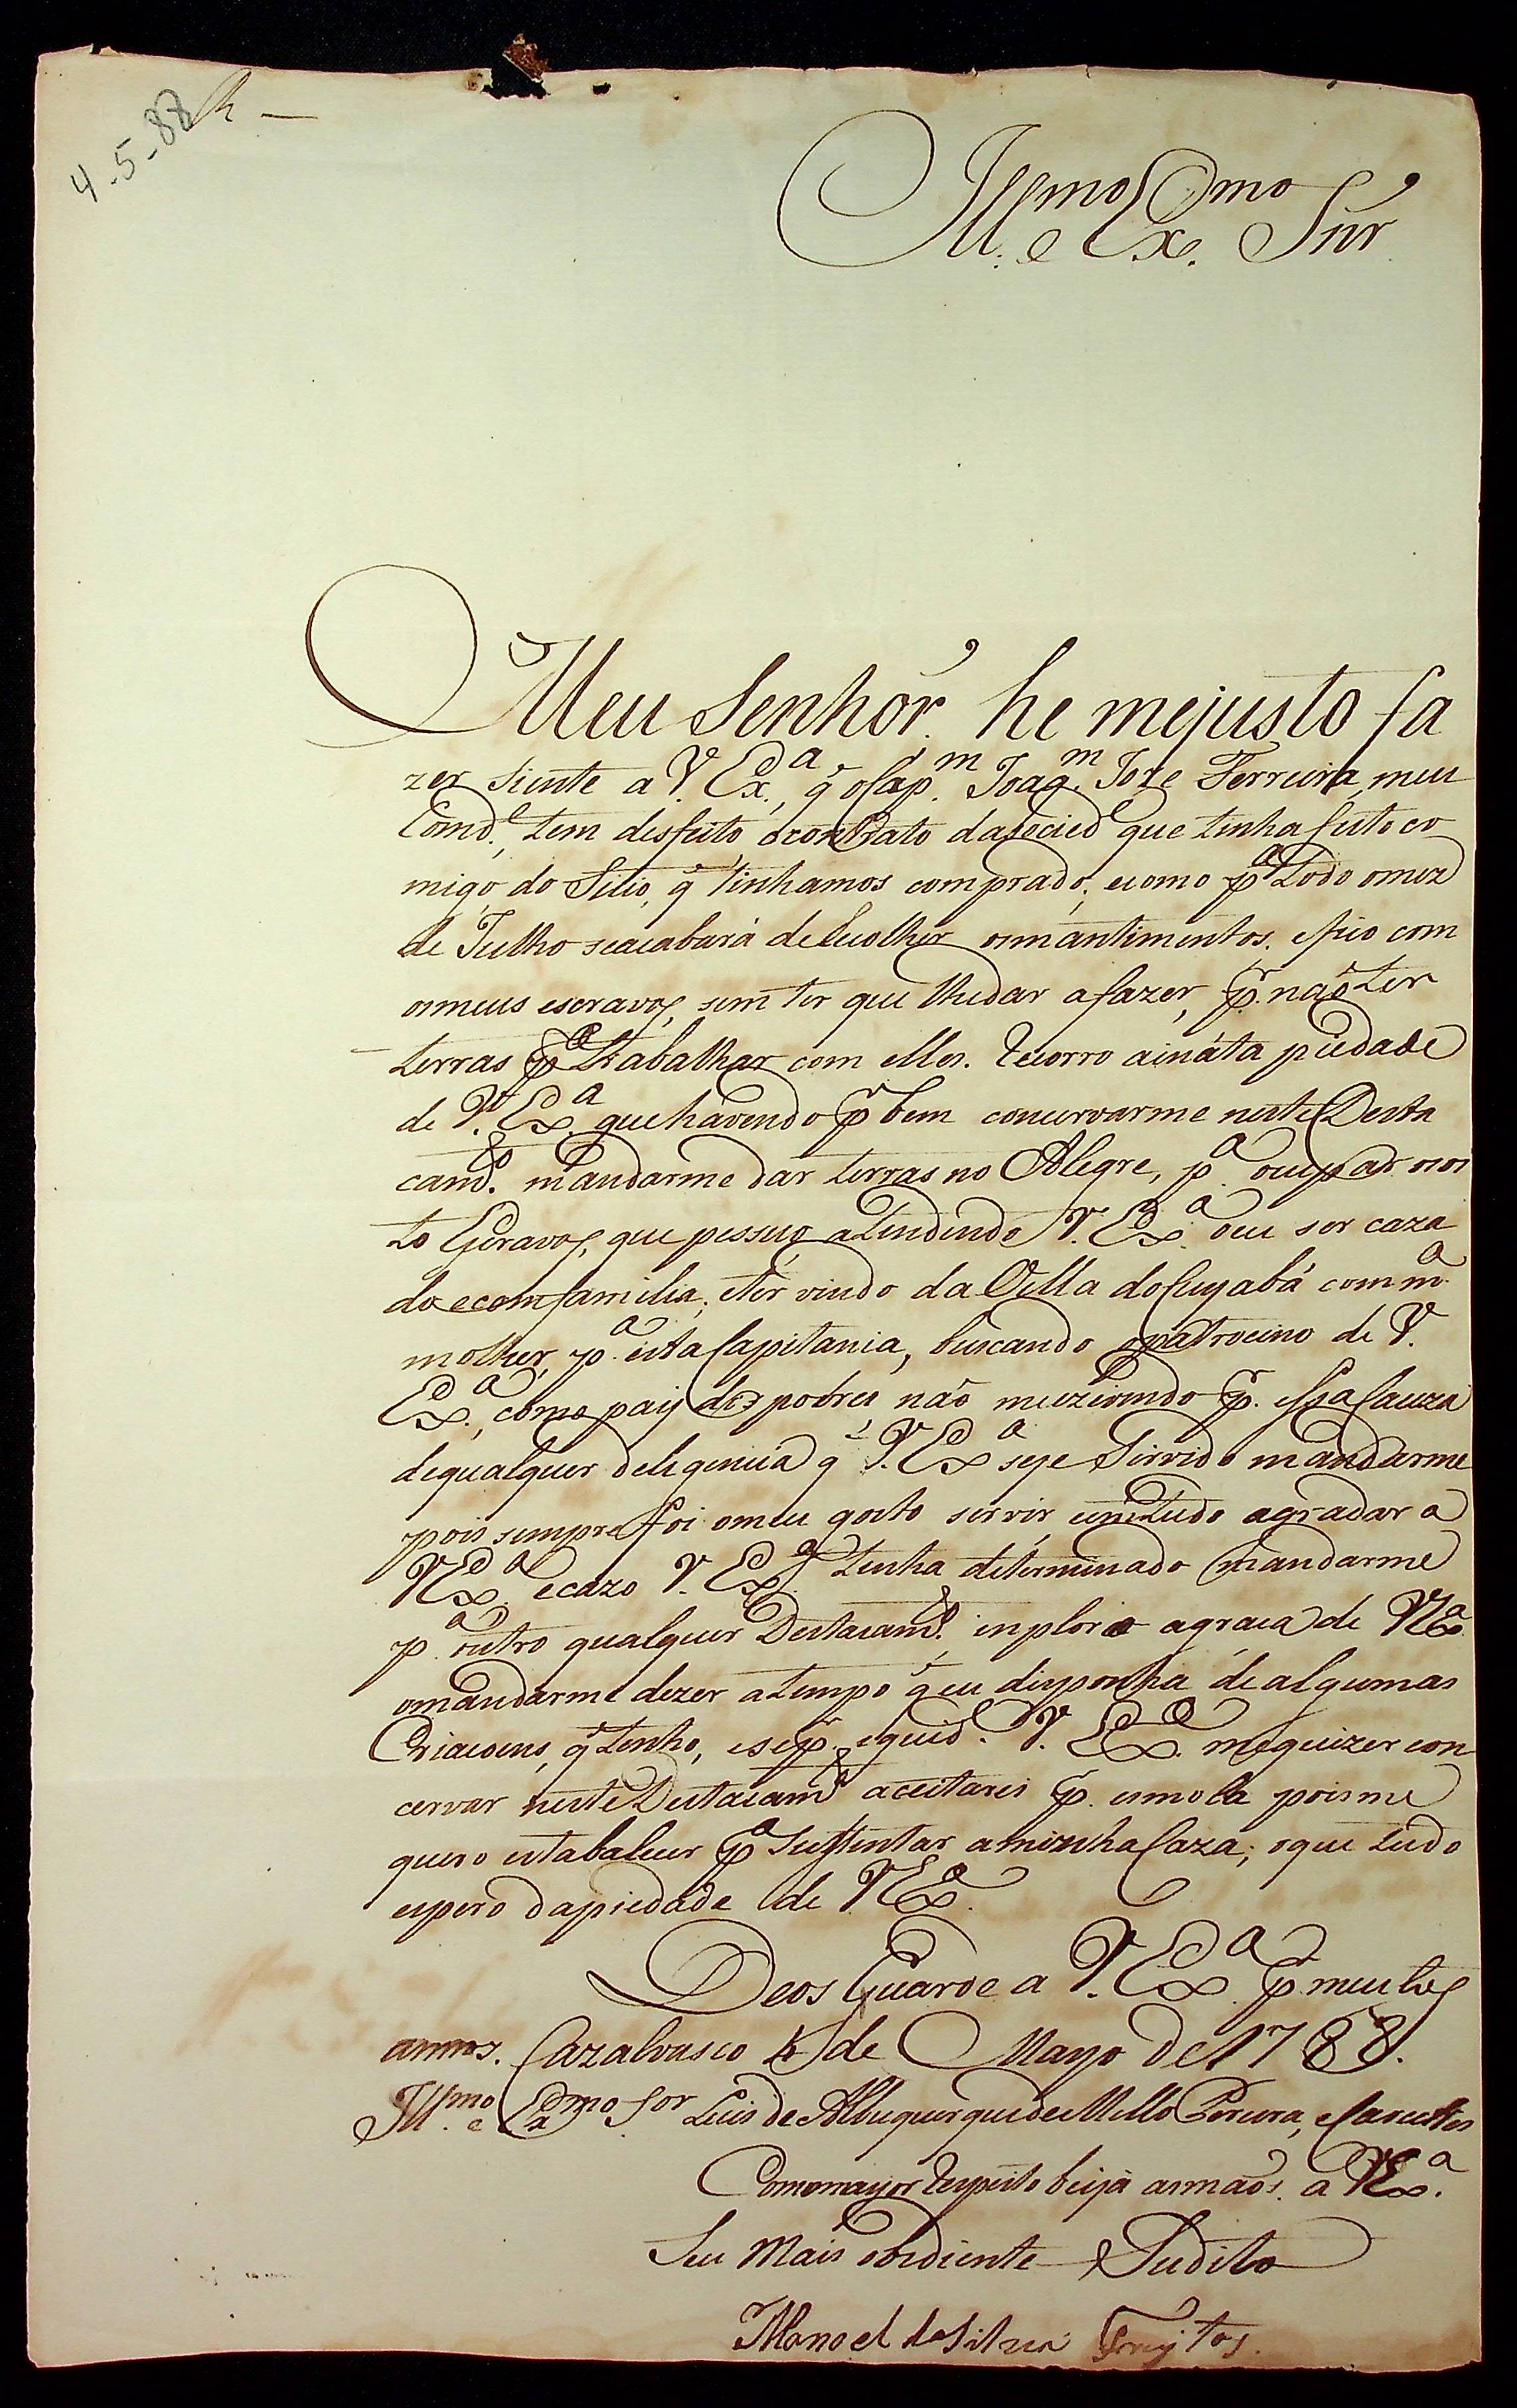 4-5-88
Ill.mo e Ex.mo Snr
Meu Senhor. he mejusto fa
zer siente a V. Ex.a, q̃ oCap.m Joaq.m Joze Ferreira, meu
Comd.e, tem desfeito ocontrato dasocied.e que tinha feito co
migo, do Sitio, q̃ tinhamos comprado; ecomo p.a todo omez
de Julho seacabará deRecolher osmantimentos. efico com
osmeus escravos, sem ter que lhedar afazer, p.r não ter
terras p.a trabalhar com elles. Recorro aináta piedade
de V. Ex.a quehavendo p.r bem concervarme nesteDesta
cam.to mandarme dar terras no Alegre, p.a ocupar oson
to Escravos, que pessuo, atendendo V. Ex.a oeu ser caza
do ecomfamilia, eter vindo da Villa doCuyabá com m.a
molher, p.a esta Capitania, buscando opatrocino de V.
Ex.a, como pay dos pobres não meuzirindo p.r essa Cauza
dequalquer deligencia q̃ V. Ex.a seje Servido mandarme
pois sempre foi omeu gosto servir, eemtudo agradar a
V Ex.a ecazo V. Ex.a tenha determinado mandarme
p.a outro qualquer Destacam.to, inploro agraca de V Ex.a
omandarme dezer atempo q̃ eu disponha dealgumas
Criacoens, q̃ tenho, esep.r equid.e V. Ex.a mequizer con
cervar nesteDestacam.to aceitarei p.r esmola poisme
quero estabalecer p.a Sustentar aminhaCaza; oque tudo
espero dapiedade de V Ex.a
Deos Guarde a V. Ex.a p.r muitos
annos. Cazalvasco 4 de Mayo de 1788.
Ill.mo e Ex.mo Sor Luis de Albuquerquede Mello Pereira, eCaceres
Comomayor Respeito beija asmãos. a V Ex.a
Seu Mais obediente Sudito
Manoel da Silva